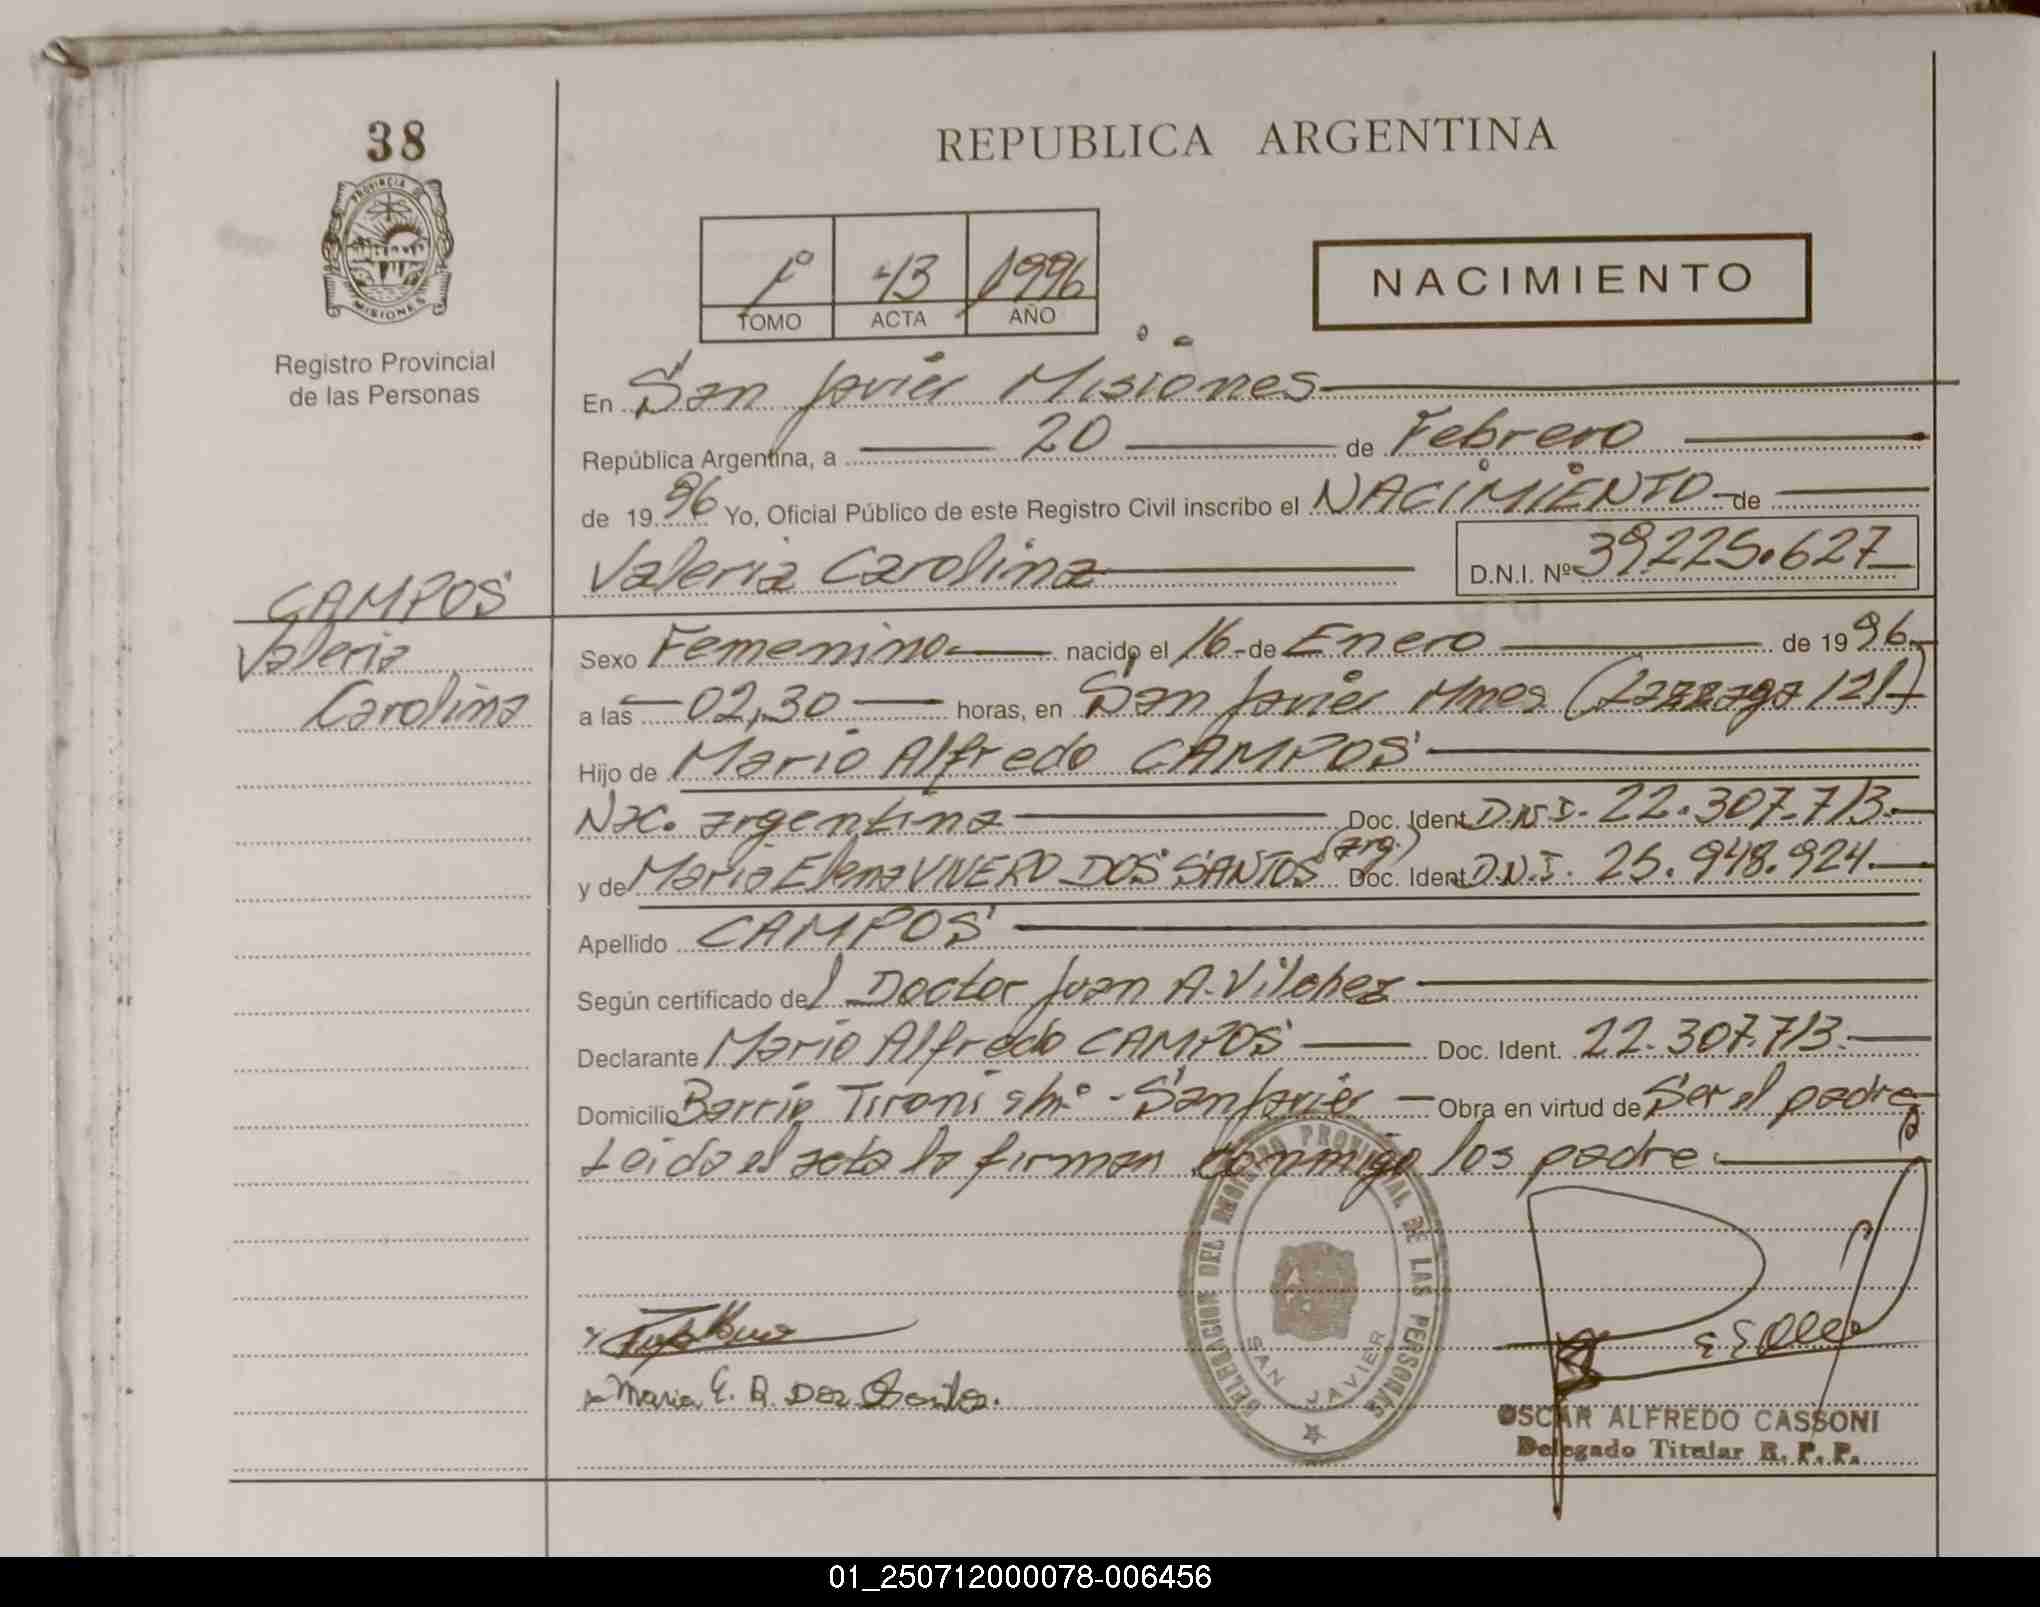 38
PROVINCIA DE
MISIONES
Registro Provincial
de las Personas
REPUBLICA ARGENTINA
1º 43 1996
TOMO ACTA AÑO
NACIMIENTO
En San Javier Misiones
República Argentina, a 20 de Febrero
de 1996 Yo, Oficial Público de este Registro Civil inscribo el NACIMIENTO de
Valeria Carolina D.N.I. Nº 39225.627
CAMPOS
Valeria
Carolina
Sexo Femenino nacido el 16 de Enero de 1996
a las 02,30 horas, en San Javier Mnes (Lazzaga 121)
Hijo de Mario Alfredo CAMPOS
Nac. argentina Doc. Ident D.N.I. 22.307.713.
y de Maria Elena VIVERO DOS SANTOS (arg.) Doc. Ident D.N.I. 25.948.924
Apellido CAMPOS
Según certificado del Doctor Juan A. Vilchez
Declarante Mario Alfredo CAMPOS Doc. Ident. 22.307.713.
Domicilio Barrio Tironi s/nº - San Javier Obra en virtud de Ser el padre
Leida el acta la firman conmigo los padre
DELEGACION DEL REGISTRO PROVINCIAL DE LAS PERSONAS
SAN JAVIER
Maria E. R. Dos Santos.
OSCAR ALFREDO CASSONI
Delegado Titular R. P. P.
01_250712000078-006456